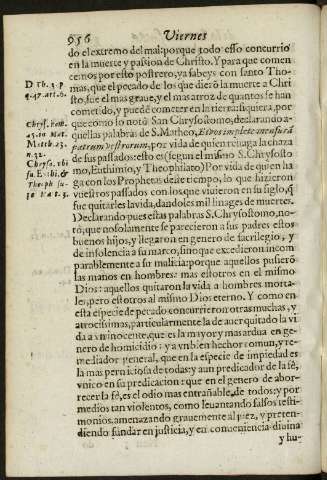 956 Viernes
do el extremo del mal: porque todo esso concurrio
en la muerte y passion de Christo. Y para que comen
cemos por esto postrero, ya sabeys con santo Tho-
mas, que el pecado de los que dierõ la muerte a Chri
sto, fue el mas graue, y el mas atroz de quantos se han
cometido, y puedẽ cometer en la tierra: siquiera, por
que como lo notò San Chrysostomo, declarando a-
quellas palabras de S. Matheo, Et vos implete mensurã
patrum vestrorum, por vida de quien renaga la chaza
de sus passados: esto es (segun el mismo S. Chrysosto
mo, Euthimio, y Theophilato) Por vida de quien ha
ga con los Prophetas de ze tiempo, lo que hizieron
vuestros passados con los que viuieron en su siglo, q̃
fue quitarles la vida, dandoles mil linages de muertes.
Declarando pues estas palabras S. Chrysostomo, no-
tò, que no solamente se parecieron a sus padres estos
buenos hijos, y llegaron en genero de sacrilegio, y
de insolencia a su marco, sino que excedieron incom
parablemente a su malicia: porque aquellos pusierõ
las manos en hombres: mas estotros en el mismo
Dios: aquellos quitaron la vida a hombres morta-
les, pero estotros al mismo Dios eterno. Y como en
esta especie de pecado concurrieron otras muchas, y
atrocissimas, particularmente la de auer quitado la vi
da a vn inocente, que es la mayor y mas ardua en ge-
nero de homicidio: y a vn bien hechor comun, y re-
mediador general, que en la especie de impiedad es
la mas perniciosa de todas: y a un predicador de la fè,
vnico en su predicacion: que en el genero de abor-
recer la fè, es el odio mas entrañable, de todos: y por
medios tan violentos, como leuantando falsos testi-
monios, amenazando grauemente al juez, y preten-
diendo fundar en justicia, y en conueniencia diuina
y hu-
D Th. 3. p.
q. 47. art. 6.
Chrys. hom.
Matth. 23.
n. 32.
Chrys. vbi
su. Euthi. &
Theoph. su-